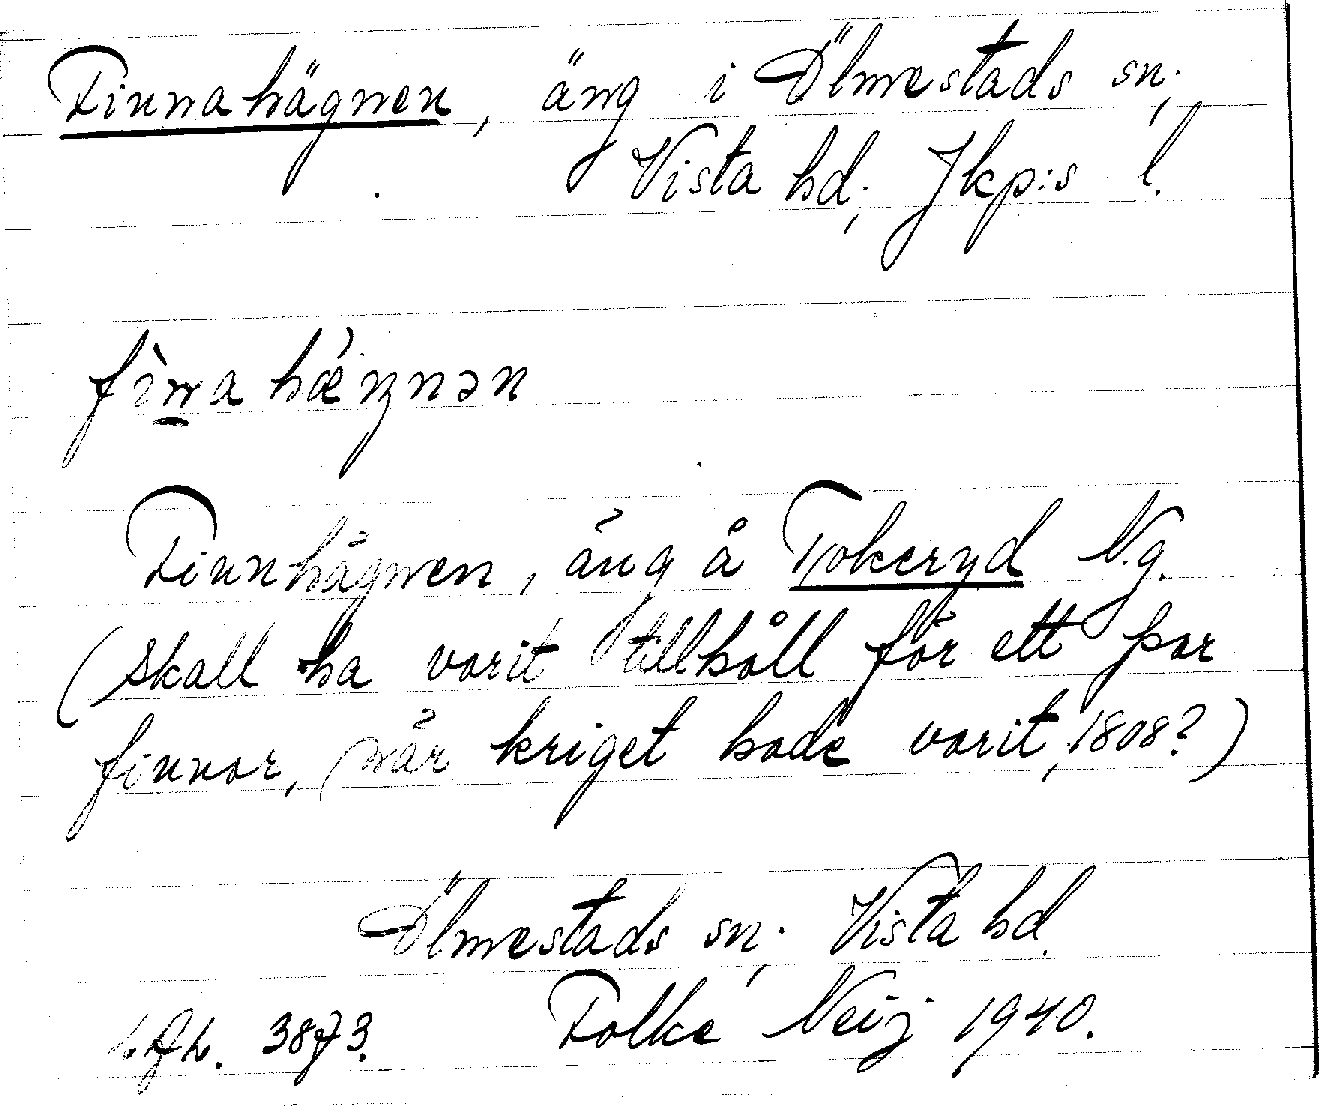 Finnahägnen, äng i Ölmestads sn.,
Vista hd., Jkp:s l.
fìnna hǽŋnən
Finnhägnen, äng å Tokeryd N.g.
(skall ha varit tillhåll för ett par
finnar, när kriget hade varit, 1808?)
Ölmestads sn., Vista hd.
3873. Folke Neij 1940.